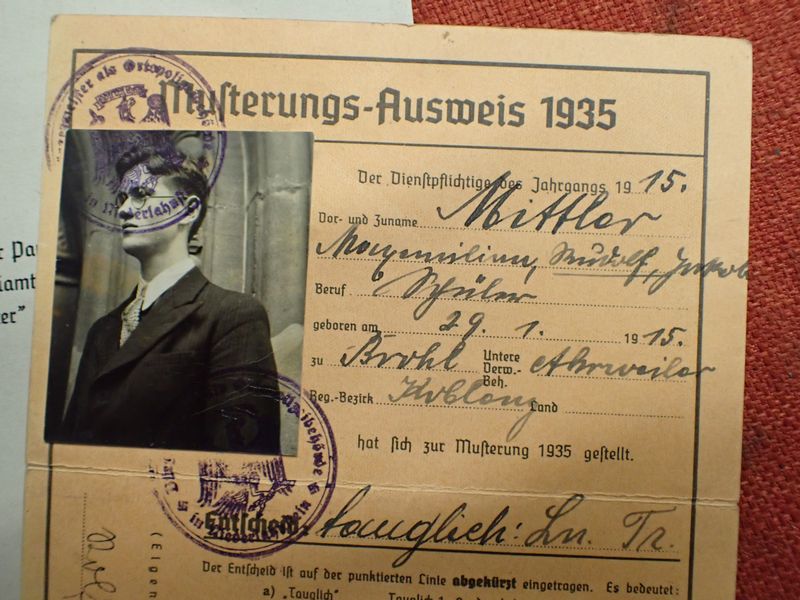 Musterungs-Ausweis 1935
Der Dienstpflichtige des Jahrgangs 1915.
Vor- und Zuname Mittler
Maxemilian, Rudolf, Jakob
Beruf Schüler
geboren am 29. 1. 1915.
zu Brohl Untere Verw.-Beh. Ahrweiler
Reg.-Bezirk Koblenz Land
hat sich zur Musterung 1935 gestellt.
Entscheid: tauglich: Ln. Tr.
Der Entscheid ist auf der punktierten Linie abgekürzt eingetragen. Es bedeutet:
a) „Tauglich"
r Pa
iamt
er"
(Eigen
als Ortspolizeibehörde
in Niederlahnstein
in Niederlahnstein